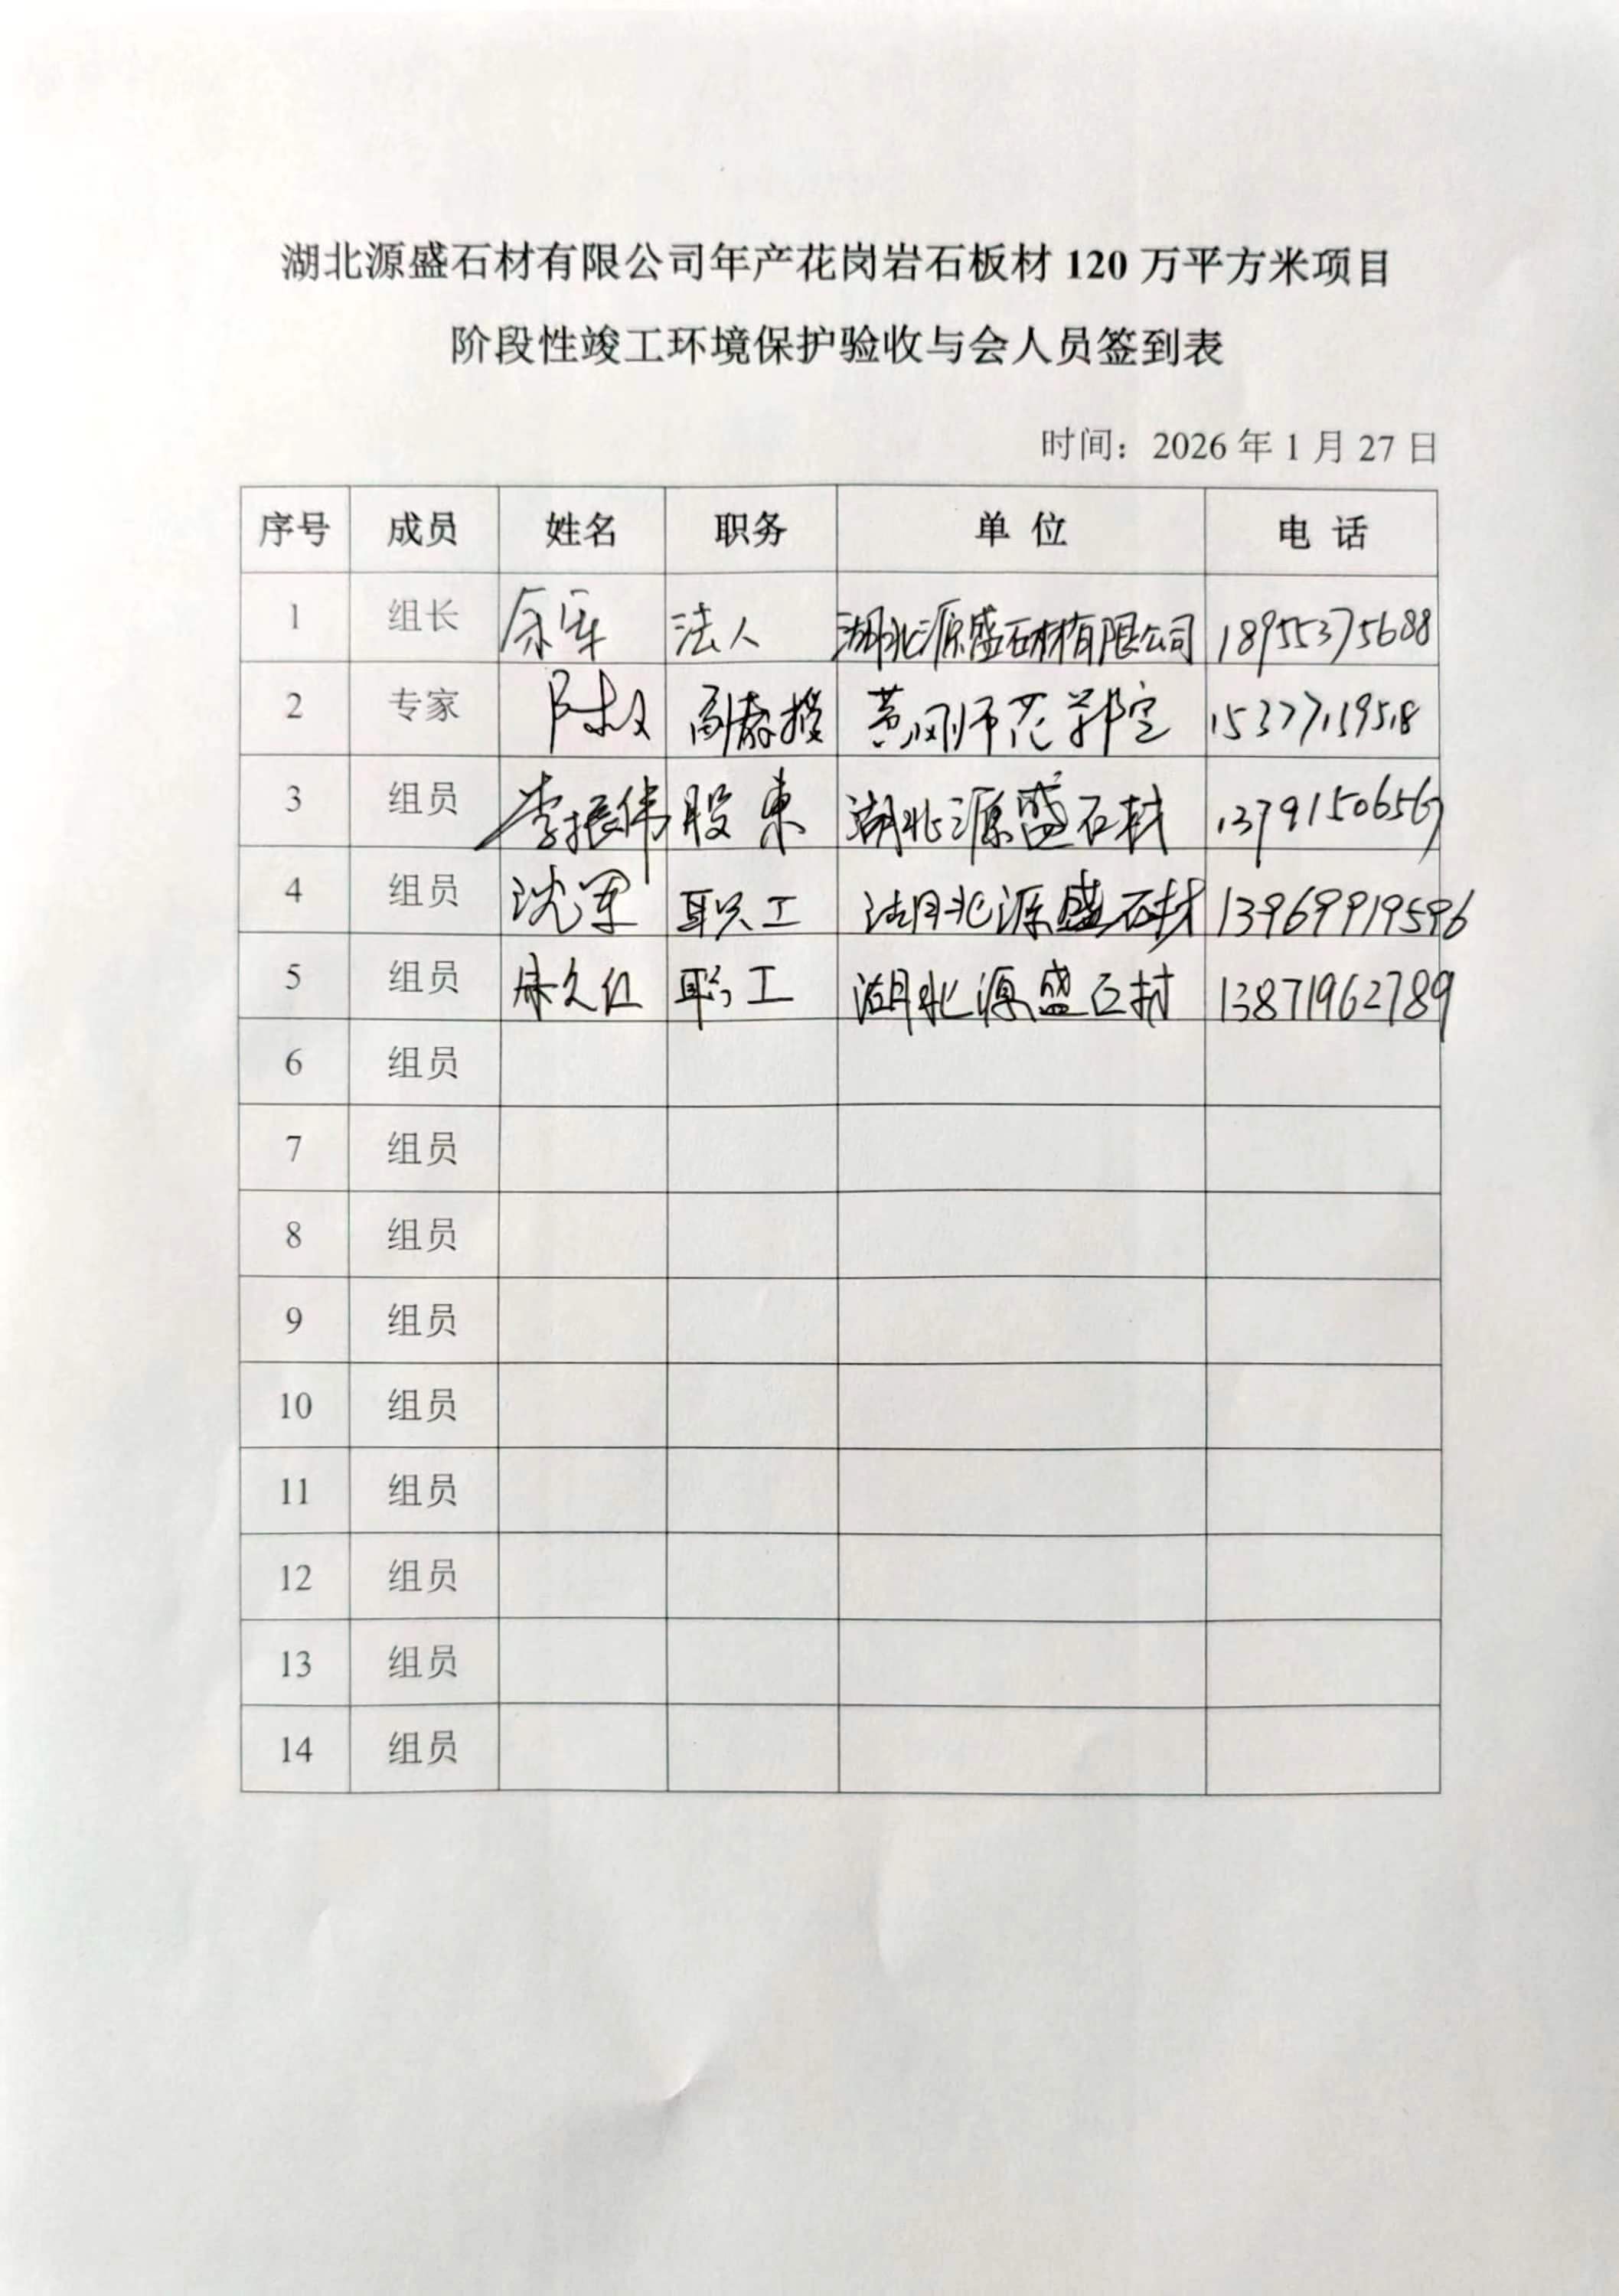 湖北源盛石材有限公司年产花岗岩石板材 120 万平方米项目
阶段性竣工环境保护验收与会人员签到表
时间：2026 年 1 月 27 日
序号 成员 姓名 职务 单 位 电 话
1 组长 法人 湖北源盛石材有限公司 18955375688
2 专家 陈权 副教授 黄冈师范学院 15377119518
3 组员 李振伟 股东 湖北源盛石材 13791506567
4 组员 沈军 职工 湖北源盛石材 13969919596
5 组员 职工 湖北源盛石材 13871962789
6 组员
7 组员
8 组员
9 组员
10 组员
11 组员
12 组员
13 组员
14 组员